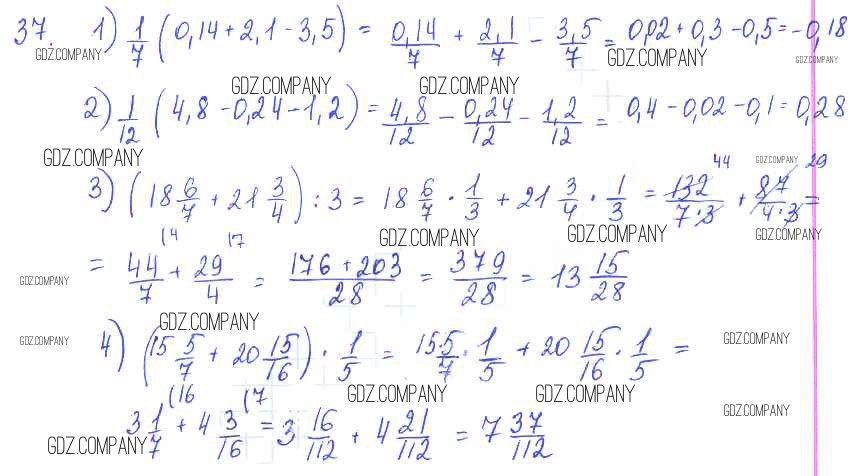 37. 1) 1/7 (0,14 + 2,1 - 3,5) = 0,14/7 + 2,1/7 - 3,5/7 = 0,02 + 0,3 - 0,5 = -0,18
GDZ.COMPANY GDZ.COMPANY GDZ.COMPANY
GDZ.COMPANY GDZ.COMPANY
2) 1/12 (4,8 - 0,24 - 1,2) = 4,8/12 - 0,24/12 - 1,2/12 = 0,4 - 0,02 - 0,1 = 0,28
GDZ.COMPANY GDZ.COMPANY
44 29
3) (18 6/7 + 21 3/4) : 3 = 18 6/7 · 1/3 + 21 3/4 · 1/3 = 132/7·3 + 87/4·3 =
GDZ.COMPANY GDZ.COMPANY GDZ.COMPANY
(4 (7
= 44/7 + 29/4 = 176 + 203/28 = 379/28 = 13 15/28
GDZ.COMPANY
GDZ.COMPANY
GDZ.COMPANY GDZ.COMPANY
4) (15 5/7 + 20 15/16) · 1/5 = 15 5/7 · 1/5 + 20 15/16 · 1/5 =
(16 (7
GDZ.COMPANY GDZ.COMPANY
3 1/7 + 4 3/16 = 3 16/112 + 4 21/112 = 7 37/112
GDZ.COMPANY GDZ.COMPANY